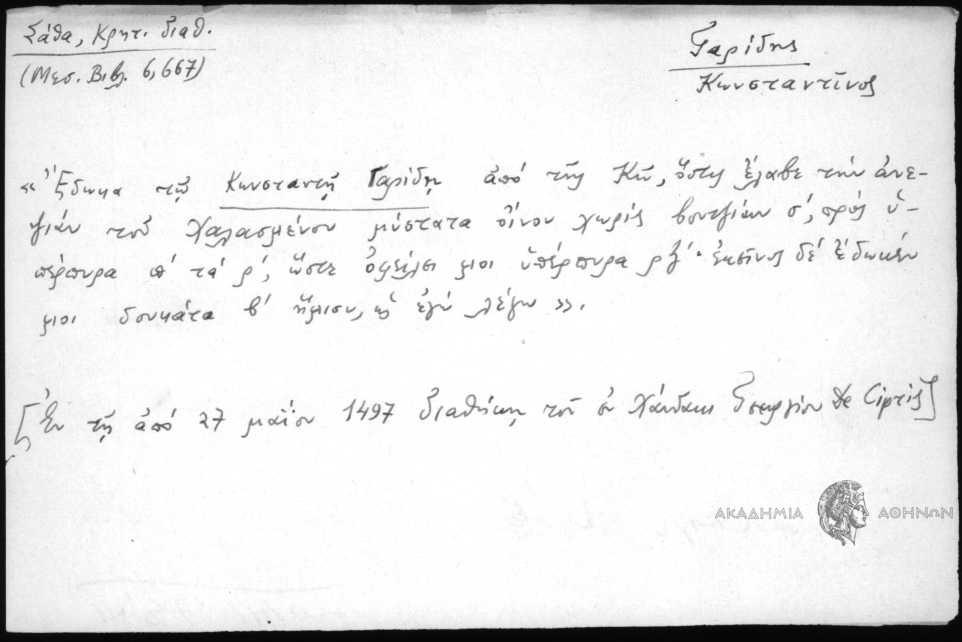 Σάθα, Κρητ. διαθ.
(Μεσ. Βιβλ. 6, 667)
Γαρίδης
Κωνσταντῖνος
«Ἔδωκα τῷ Κωνσταντῇ Γαρίδῃ ἀπό τῆς Κῶ, ὅστις ἔλαβε τήν ἀνε-
ψιάν τοῦ Χαλασμένου μύστατα οἴνου χωρίς βουτζίων σ', πρός ὑ-
πέρπυρα π' τά ρ', ὥστε ὀφείλει μοι ὑπέρπυρα ρξ'· ἐκεῖνος δέ ἔδωκέν
μοι δουκάτα β' ἥμισυ, ὡς ἐγώ λέγω».
[Ἐν τῇ ἀπό 27 μαΐου 1497 διαθήκῃ τοῦ ἐν Χάνδακι Γεωργίου de]
ΑΚΑΔΗΜΙΑ ΑΘΗΝΩΝ